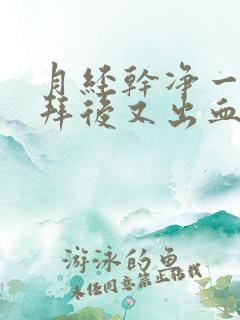 月經幹净一
拜後又出血
游泳的鱼
未经同意禁止转载